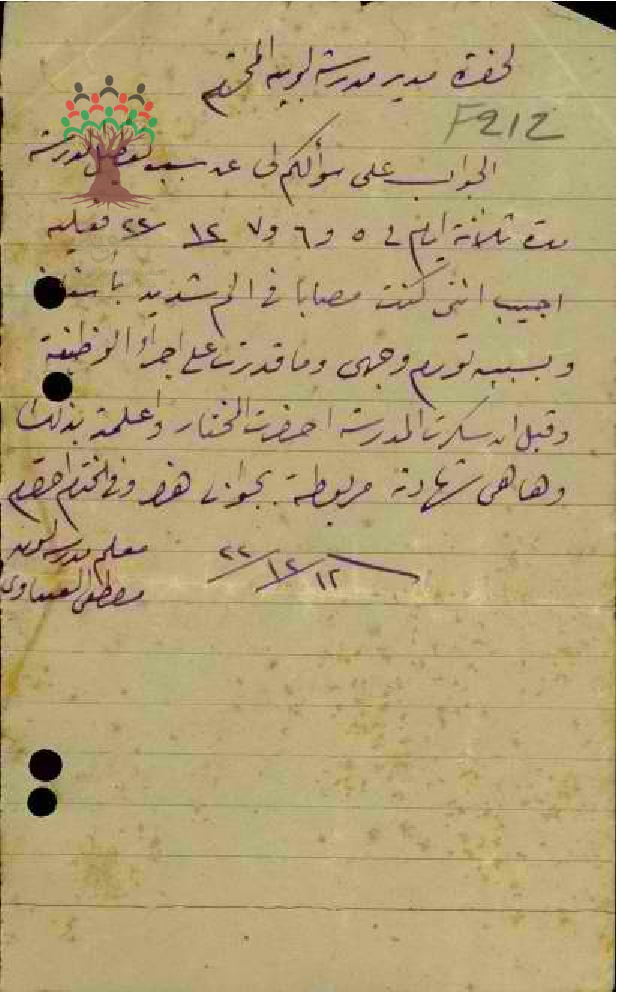 لحضرة مدير مدرسة لوبيه المحترم
F212
الجواب على سؤالكم لي عن سبب تعطيل المدرسة
مدة ثلاثة ايام في ٥ و٦ و٧ ١٢ ٢٢ فعليه
اجيب انني كنت مصابا في الم شديد بأسناني
وبسببه تورم وجهي وما قدرت على اجراؤ الوظيفة
وقبل ان سكرت المدرسة احضرت المختار واعلمته بذلك
وها هي شهادته مربوطة بجوابي هذا وفي الختام احترام
معلم مدرسة لوبيه
١٢/١٢/٢٢
مصطفى